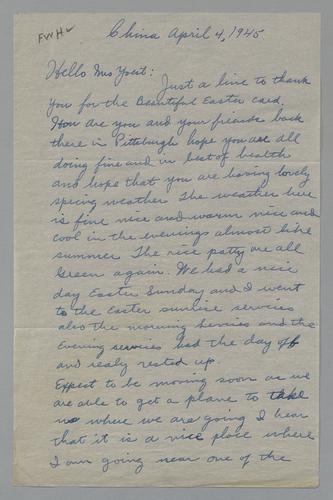 FWHL
China April 4, 1945
Hello Mrs Yoeit:
Just a line to thank
you for the Beautiful Easter card.
How are you and your friends back
there in Pittsburgh hope you are all
doing fine and in best of health
and hope that you are having lovely
spring weather. The weather here
is fine nice and warm nice and
cool in the evenings almost like
summer. The rice patty are all
Green again. We had a nice
day Easter Sunday and I went
to the Easter sunrise services
also the morning Services and the
Evening services had the day off
and realy rested up.
Expect to be moving soon as we
are able to get a plane to take
us where we are going I hear
that it is a nice place where
I am going near one of the